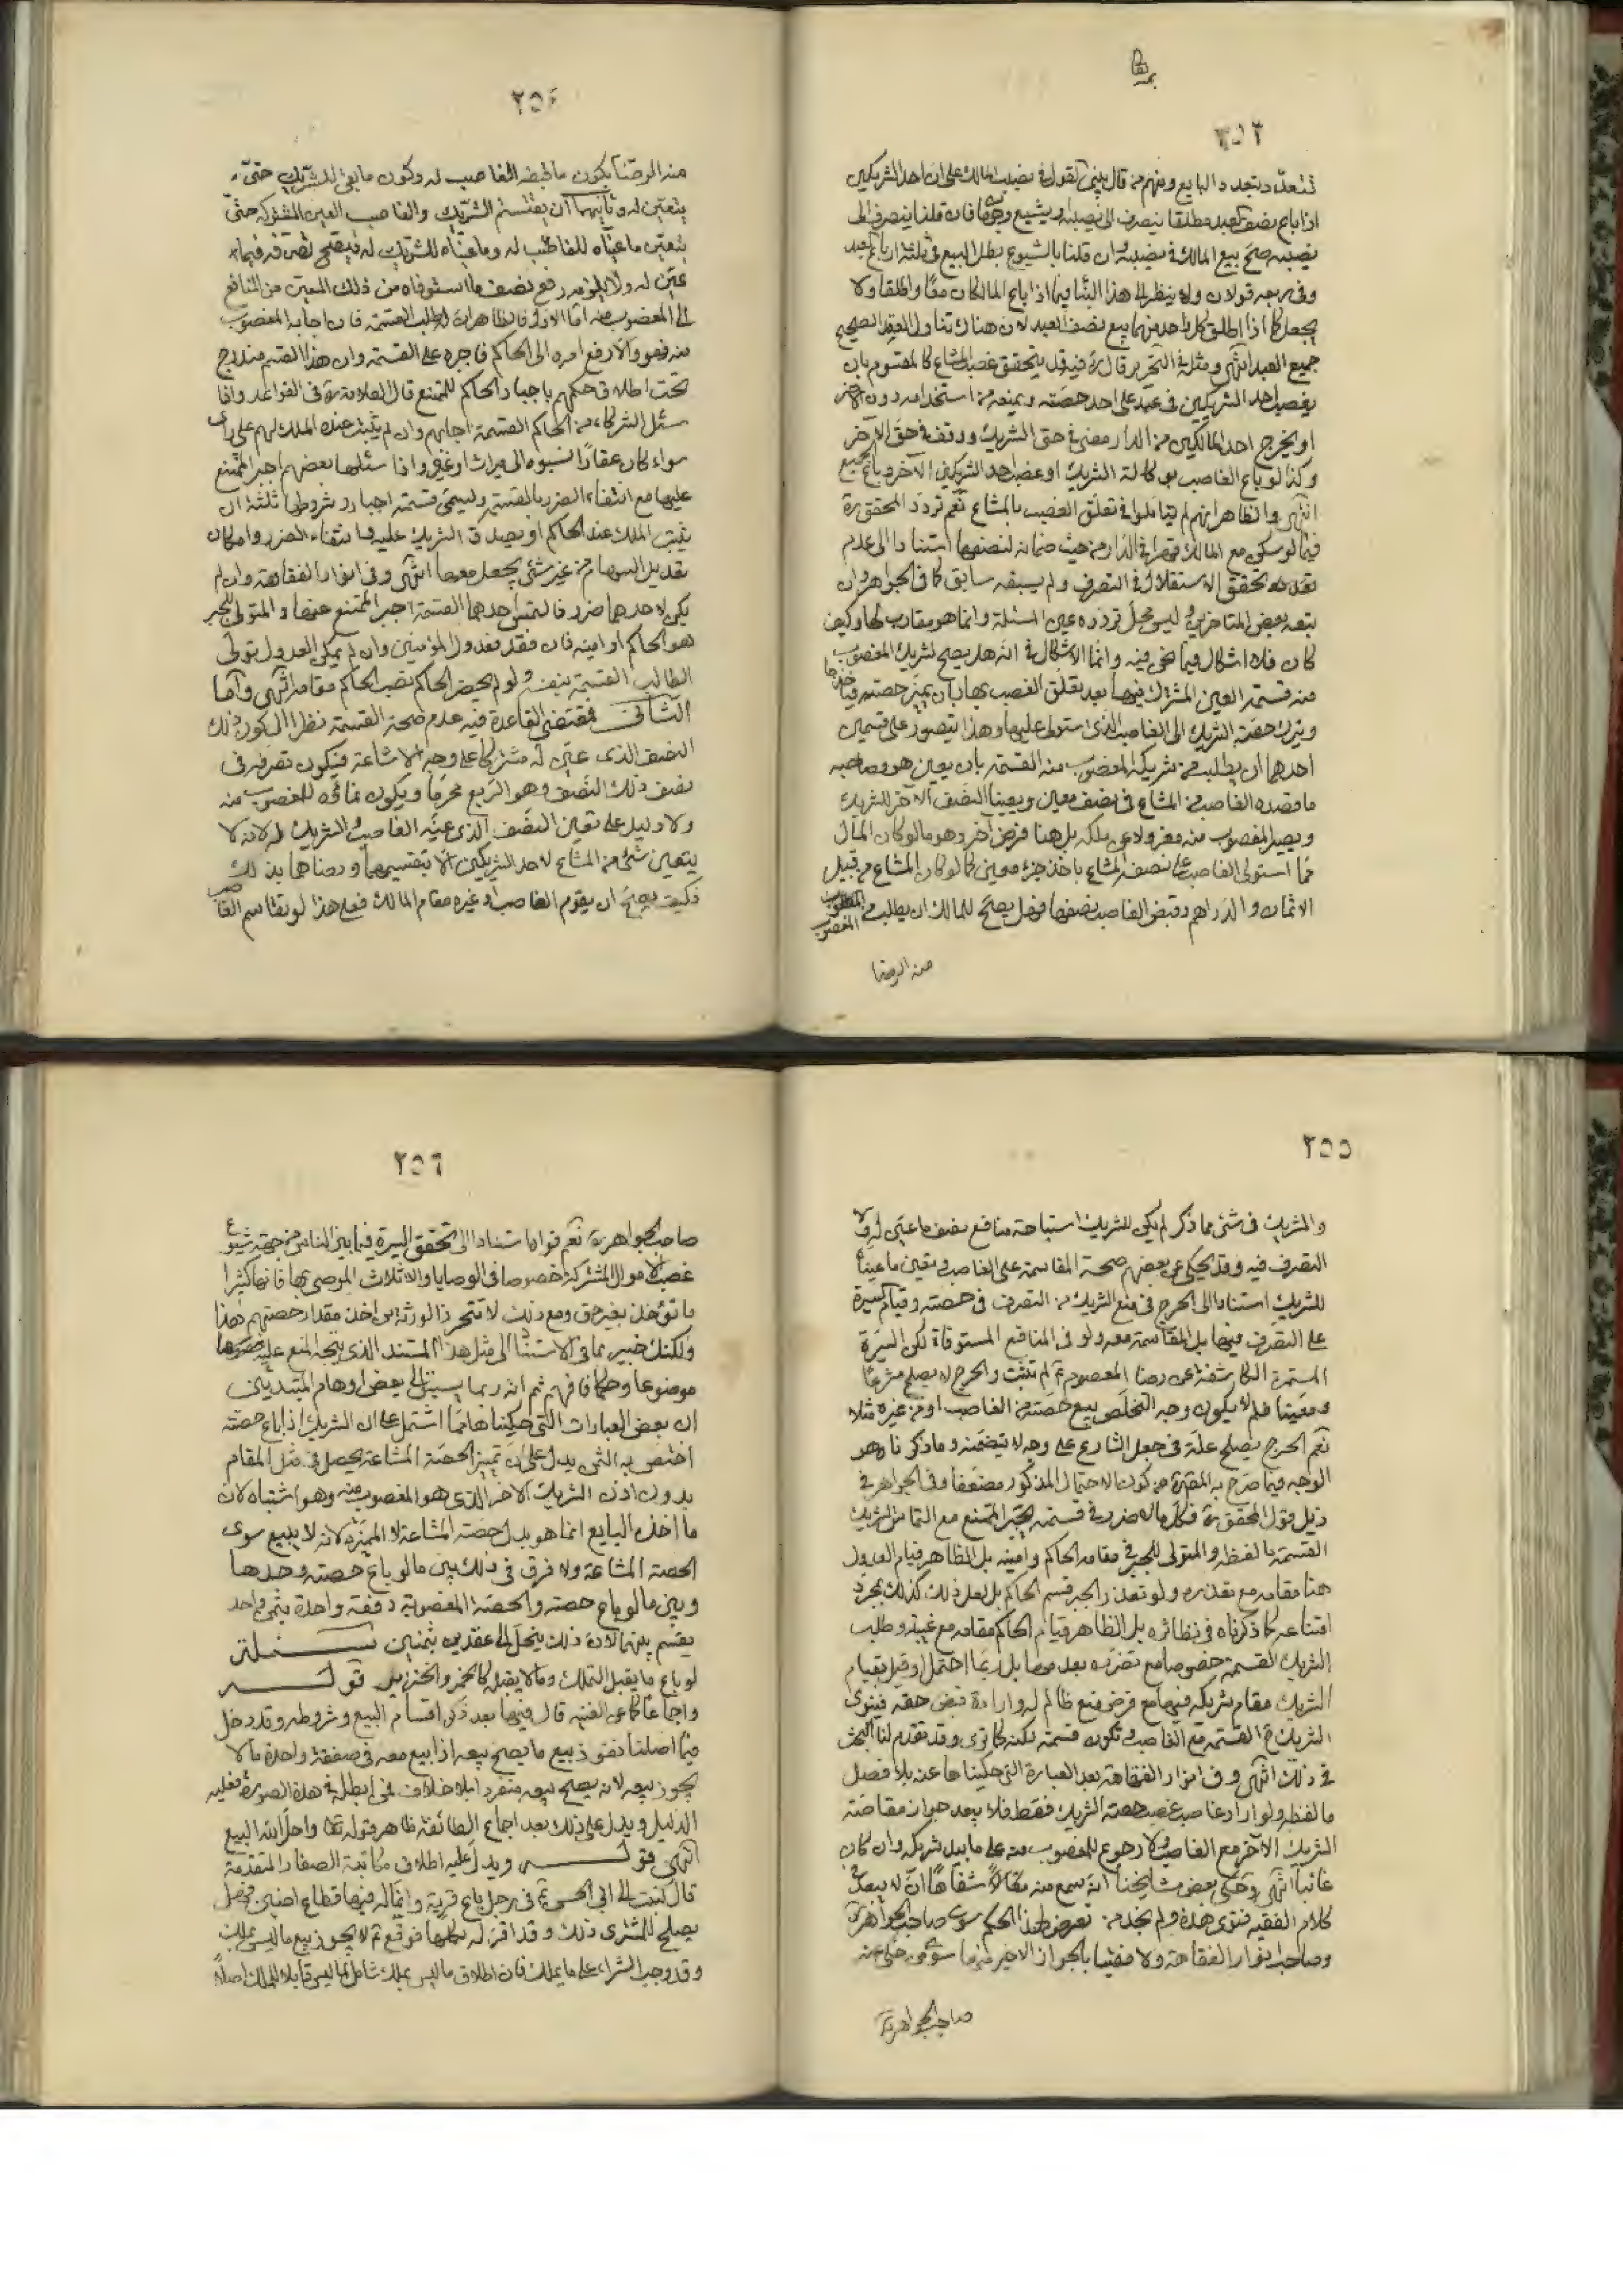 ٢٥٣
اذا باع نصف العبد مطلقا ينصرف الى نصيبه او يشيع فان قلنا ينصرف الى
نصيبه صح بيع المالك في نصيبه وان قلنا بالشيوع بطل البيع في ثلثة ارباع العبد
جميع العبد انتهى ومثله في التحرير قال فيه قد يتحقق غصب المشاع كالمقسوم بان
يغصب احد الشريكين في عبد على احد حصته ويمنعه من استخدامه دون الاخر
او يخرج احد المالكين من الدار مضى في حق الشريك ووقف في حق الآخر
وكذا لو باع الغاصب بوكالة الشريك او غصب احد الشريكين الآخر وباع الجميع
انتهى والظاهر انهم لم يتاملوا في تعلق الغصب بالمشاع نعم تردد المحقق ره
فيما لو سكن مع المالك قهرا في الدار من حيث ضمانه لنصفها استنادا الى عدم
تحقق الاستقلال في التصرف ولم يسبقه سابق كما في الجواهر وان
تبعه بعض المتأخرين وليس محل تردده عين المسئلة وانما هو مقارب لها وكيف
كان فلا اشكال فيما نحن فيه وانما الاشكال في انه هل يصح لشريك المغصوب
منه قسمة العين المشترك فيها بعد تعلق الغصب بها بان يميز حصته فيأخذها
ويترك حصة الشريك الى الغاصب الذي استولى عليها وهذا يتصور على قسمين
احدهما ان يطلب من شريكه المغصوب منه القسمة بان يعين هو وصاحبه
ما قصده الغاصب من المشاع في نصف معين ويعينا النصف الآخر للشريك
ويصير المغصوب منه معزولا عن ملكه بل هنا فرض آخر وهو ما لو كان المال
مما استولى الغاصب على نصفه المشاع باخذ جزء معين كما لو كان المشاع من قبيل
الاثمان والدراهم وقبض الغاصب نصفها فهل يصح للمالك ان يطلب من المغصوب
منه الرضا
٢٥٤
منه الرضا بكون ما قبضه الغاصب له وكون ما بقى للشريك حتى
يتعين له وثانيهما ان يقتسم الشريك والغاصب العين المشتركة حتى
يتعين ما عيناه للغاصب له وما عيناه للشريك له فيصح تصرفه فيما
عين له ولا يلزمه دفع نصف ما استوفاه من ذلك المعين من المنافع
الى المغصوب منه اما الاول فالظاهر ان له طلب القسمة فان اجابه المغصوب
منه فهو والا رفع امره الى الحاكم فاجبره على القسمة وان هذا القسم مندرج
تحت اطلاق حكمهم باجبار الحاكم للممتنع قال العلامة ره في القواعد واذا
سئل الشركاء من الحاكم القسمة اجابهم وان لم يثبت عنده الملك لهم على رأى
سواء كان عقارا نسبوه الى ميراث او غيره واذا سئلها بعضهم اجبر الممتنع
عليها مع انتفاء الضرر بالقسمة وليسمى قسمة اجبار وشروطها ثلثة ان
يثبت الملك عند الحاكم او يصدق الشريك عليه وانتفاء الضرر وامكان
تعديل السهام من غير شئ يجعل معها انتهى وفى انوار الفقاهة وان لم
يكن لاحدهما ضرر فالتمس احدهما القسمة اجبر الممتنع عنها والمتولى للجبر
هو الحاكم او امينه فان فقد فعدول المؤمنين وان لم يمكن العدول تولى
الطالب القسمة بنفسه ولو لم يحضر الحاكم نصب الحاكم مقامه انتهى واما
الثانى فمقتضى القاعدة فيه عدم صحة القسمة نظرا الى كون ذلك
النصف الذى عين له مشتركا على وجه الاشاعة فيكون تصرفه فى
نصف ذلك النصف وهو الربع محرما ويكون نمائه للمغصوب منه
ولا دليل على تعين النصف الذى عينه الغاصب والشريك له لانه لا
يتعين شئ من المشاع لاحد الشريكين الا بتقسيمهما ورضاهما بذلك
فكيف يصح ان يقوم الغاصب او غيره مقام المالك فعلى هذا لو تقاسم الغاصب
٢٥٥
والشريك فى شئ مما ذكر لم يكن للشريك استباحة منافع نصف ما عين له ولا
التصرف فيه وقد يحكى عن بعضهم صحة المقاسمة على الغاصب وتعين ما عينا
للشريك استنادا الى الحرج فى منع الشريك من التصرف فى حصته وقيام السيرة
على التصرف فيها بل المقاسمة معه ولو فى المنافع المستوفاة لكن السيرة
المستمرة الكاشفة عن رضا المعصوم ع لم تثبت والحرج لا يصلح مشرعا
ومعينا فلم لا يكون وجه التخلص بيع حصته من الغاصب او من غيره مثلا
نعم الحرج يصلح علة فى جعل الشارع على وجه لا يتضمنه وما ذكرناه هو
الوجه فيما صرح به المقرر من كون الاحتمال المذكور مضعفا وفى الجواهر فى
ذيل قول المحقق ره فكل ما لا ضرر فى قسمته يجبر الممتنع مع التماس الشريك
القسمة ما لفظه والمتولى للجبر فى مقامه الحاكم وامينه بل الظاهر قيام العدول
هنا مقامه مع تعذره ولو تعذر الجبر قسم الحاكم بل لعل ذلك كذلك بمجرد
امتناعه كما ذكرناه فى نظائره بل الظاهر قيام الحاكم مقامه مع غيبته وطلب
الشريك القسمة خصوصا مع تضرره بعدمها بل ربما احتمل او قيل بقيام
الشريك مقام شريكه فيها مع فرض منع ظالم له وارادة قبض حقه فينوى
الشريك القسمة مع الغاصب وتكون قسمة لكنه كما ترى وقد تقدم لنا البحث
فى ذلك انتهى وفى انوار الفقاهة بعد العبارة التى حكيناها عنه بلا فصل
ما لفظه ولو اراد غاصب غصب حصة الشريك فقط فلا يبعد جواز مقاسمة
الشريك الآخر مع الغاصب ولا رجوع للمغصوب منه على ما بيد شريكه وان كان
غائبا انتهى وحكى بعض مشايخنا انه سمع منه مقالا شفاها انه لا يبعد
كلام الفقيه فتوى هذه ولم نجد من تعرض لهذا الحكم سوى صاحب الجواهر ره
وصاحب انوار الفقاهة ولا مفتيا بالجواز الا الاخير منهما سوى من حكى عنه
صاحب الجواهر ره
٢٥٦
صاحب الجواهر ره نعم قواه استنادا الى تحقق السيرة فيما بين الناس من جهة شيوع
غصب الاموال المشتركة خصوصا فى الوصايا والاثلاث الموصى بها فانها كثيرا
ما تؤخذ بغير حق ومع ذلك لا تتحرز الورثة من اخذ مقدار حصتهم هذا
ولكنك خبير بما فى الاستناد الى مثل هذا المستند الذى يتجه المنع عليه خصوصا
موضوعا وحكما فافهم ثم انه ربما يسبق الى بعض اوهام المبتدئين
ان بعض العبارات التى حكيناها مما اشتمل على ان الشريك اذا باع حصته
اختص به الثمن يدل على ان تميز الحصة المشاعة يحصل فى مثل المقام
بدون اذن الشريك الآخر الذى هو المغصوب منه وهو اشتباه لان
ما اخذه البايع انما هو بدل حصته المشاعة لا المميزة لانه لا يبيع سوى
الحصة المشاعة ولا فرق فى ذلك بين ما لو باع حصته وحدها
وبين ما لو باع حصته والحصة المغصوبة دفعة واحدة بثمن واحد
يقسم بينهما لان ذلك ينحل الى عقدين بثمنين مسئلة
لو باع ما يقبل التملك وما لا يقبله كالخمر والخنزير قوله
واجماعا كما عن الغنية قال فيها بعد ذكر اقسام البيع وشروطه وقد دخل
فيما اصلناه نفوذ بيع ما يصح بيعه اذا بيع معه فى صفقة واحدة ما لا
يجوز بيعه لانه يصح بيعه منفردا بلا خلاف فمن ابطله فى هذه الصورة فعليه
الدليل ويدل على ذلك بعد اجماع الطائفة ظاهر قوله تعالى واحل الله البيع
انتهى قوله ويدل عليه اطلاق مكاتبة الصفار المتقدمة
قال كتبت الى ابى الحسن ع فى رجل باع قرية وانما له فيها قطاع ارضين فهل
يصلح للمشترى ذلك وقد اقر له بكلها فوقع ع لا يجوز بيع ما ليس يملك
وقد وجب الشراء على ما يملك فان اطلاق ما ليس يملك شامل لما ليس قابلا للملك اصلا